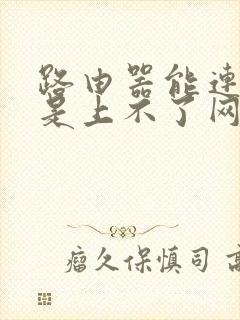 路由器能连
是上不了网
瘤久保慎司 高